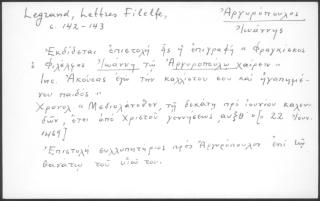 Legrand, Lettres Filelfe,
c. 142-143
Ἀργυρόπουλος
Ἰωάννης
Ἐκδίδεται ἐπιστολὴ ἧς ἡ ἐπιγραφὴ "Φραγκίσκος
ὁ Φιλέλφος Ἰωάννῃ τῷ Ἀργυροπούλῳ χαίρειν"
Inc. Ἀκούσας ἐγὼ τὴν καλλίστου σου καὶ ἠγαπημέ-
νου παιδός"
Χρόνος "Μεδιολάνοθεν, τῇ δεκάτῃ πρὸ ἰουνίου καλαν-
δῶν, ἔτει ἀπὸ Χριστοῦ γεννήσεως αυξθʹ" [= 22 Ἰουν.
1469]
Ἐπιστολὴ συλλυπητήριος πρὸς Ἀργυρόπουλον ἐπὶ τῷ
θανάτῳ τοῦ υἱοῦ του.